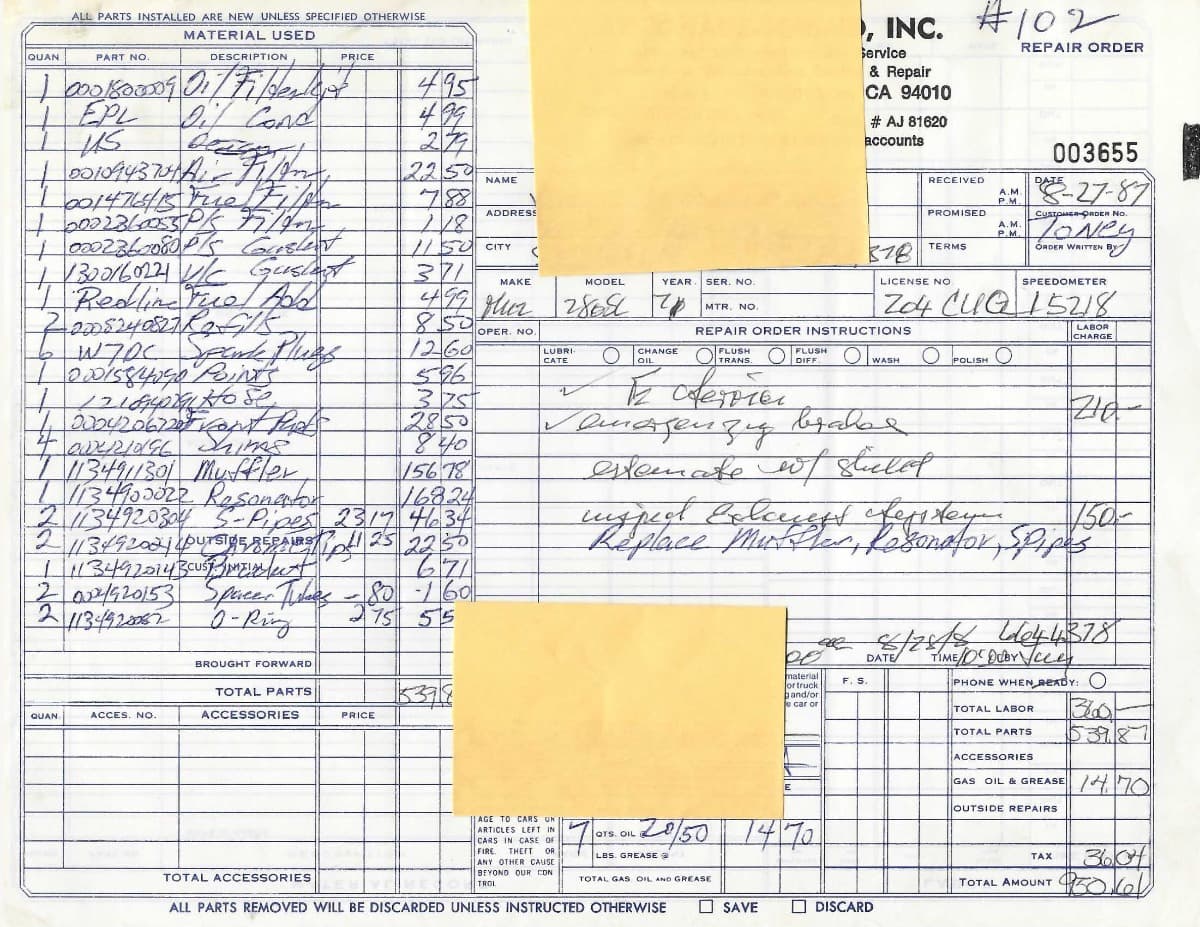 ALL PARTS INSTALLED ARE NEW UNLESS SPECIFIED OTHERWISE
MATERIAL USED
QUAN PART NO. DESCRIPTION PRICE
1 0001800009 Oil Filter Kit 4 95
1 EPL Oil Cond 4 99
1 US 2 79
1 0010943704 Air Filter 22 50
1 0014776415 Fuel Filter 7 88
1 0002360053 P/S Filter 1 18
1 0002360080 P/S Gasket 1 50
1 1300160221 V/C Gasket 3 71
1 Redline Fuel Add 4 99
2 0008240827 Refills 8 50
6 W7DC Spark Plugs 12 60
1 0001584090 Points 5 96
1 Hose 3 75
1 0004206720 Front Pads 28 50
4 0004210196 Shims 8 40
1 1134911301 Muffler 156 78
1 1134900022 Resonator 168 24
2 1134920304 S-Pipes 23 17 46 34
2 1134920214 Chrome Tips 11 25 22 50
OUTSIDE REPAIRS
1 1134920143 Bracket 6 71
CUST. INITIAL
2 0004920153 Spacer Tubes -80 -1 60
2 1134920082 O-Ring 2 75 5 5
BROUGHT FORWARD
TOTAL PARTS 539.8
QUAN. ACCES. NO. ACCESSORIES PRICE
TOTAL ACCESSORIES
, INC.
#102
REPAIR ORDER
Service
& Repair
CA 94010
# AJ 81620
accounts
003655
NAME
ADDRESS
CITY
378
RECEIVED A.M. P.M.
DATE 8-27-87
PROMISED A.M. P.M.
CUSTOMER ORDER NO.
Toney
TERMS
ORDER WRITTEN BY
MAKE MODEL YEAR SER. NO. LICENSE NO. SPEEDOMETER
280SL MTR. NO. 204 CUQ 15218
OPER. NO. REPAIR ORDER INSTRUCTIONS LABOR CHARGE
LUBRICATE CHANGE OIL FLUSH TRANS. FLUSH DIFF. WASH POLISH
✓ service 210.-
✓ emergency brake
estimate w/
inspect exhaust system 150.-
Replace Muffler, Resonator, S Pipes
644378
DATE 8/28/8 TIME BY
material
or truck
and/or
e car or
F. S.
PHONE WHEN READY:
TOTAL LABOR 360.-
TOTAL PARTS 539.87
ACCESSORIES
GAS OIL & GREASE 14.70
OUTSIDE REPAIRS
TAX 36.04
TOTAL AMOUNT 950.61
AGE TO CARS OR
ARTICLES LEFT IN
CARS IN CASE OF
FIRE. THEFT OR
ANY OTHER CAUSE
BEYOND OUR CON
TROL
7 QTS. OIL @ 20/50 14 70
LBS. GREASE @
TOTAL GAS OIL AND GREASE
ALL PARTS REMOVED WILL BE DISCARDED UNLESS INSTRUCTED OTHERWISE SAVE DISCARD